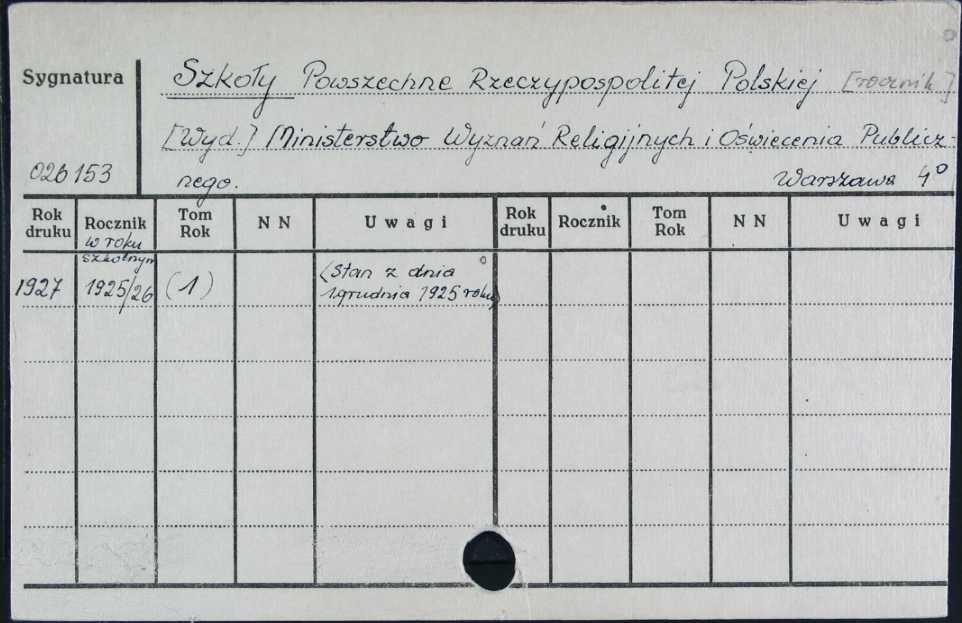 Sygnatura
Szkoły Powszechne Rzeczypospolitej Polskiej [rocznik]
[Wyd.] Ministerstwo Wyznań Religijnych i Oświecenia Publicz-
026153
nego. Warszawa 4°
Rok druku Rocznik Tom Rok N N Uwagi Rok druku Rocznik Tom Rok N N Uwagi
w roku szkolnym
1927 1925/26 (1) (Stan z dnia
1 grudnia 1925 roku)